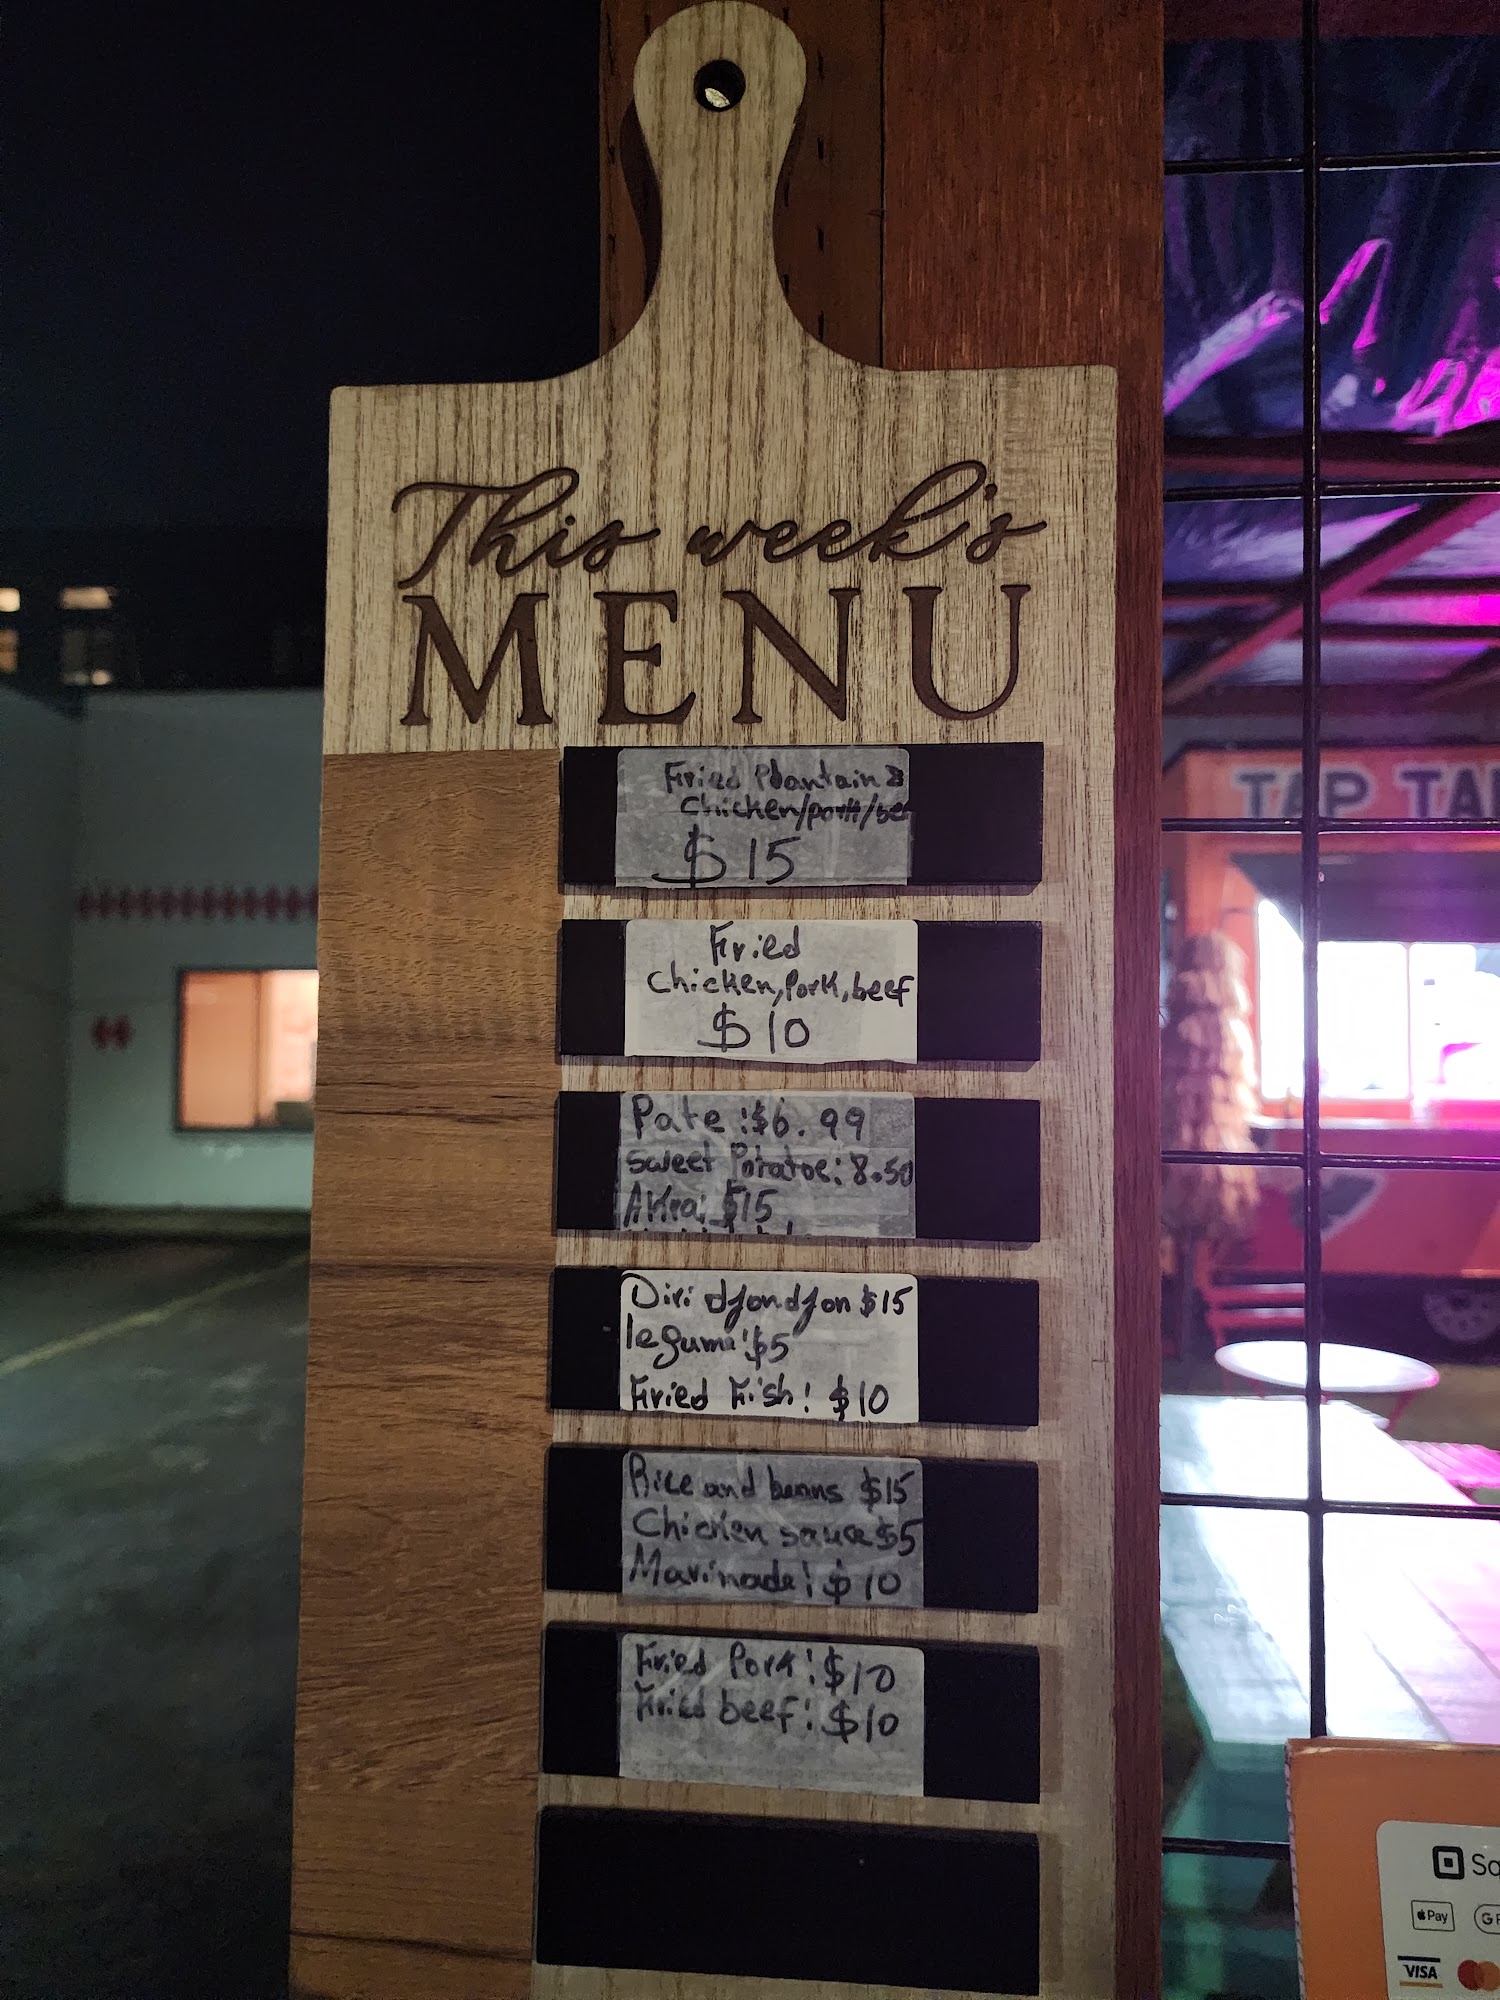 This week's
MENU
Fried Plantain &
Chicken/pork/bee
$15
Fried
Chicken, Pork, beef
$10
Pate : $6.99
sweet Potatoe: 8.50
Akra: $15
Diri djondjon $15
legume: $5
Fried Fish: $10
Rice and beans $15
Chicken sauce $5
Marinade: $10
Fried Pork: $10
Fried beef: $10
TAP TA
Sq
Pay
G P
VISA